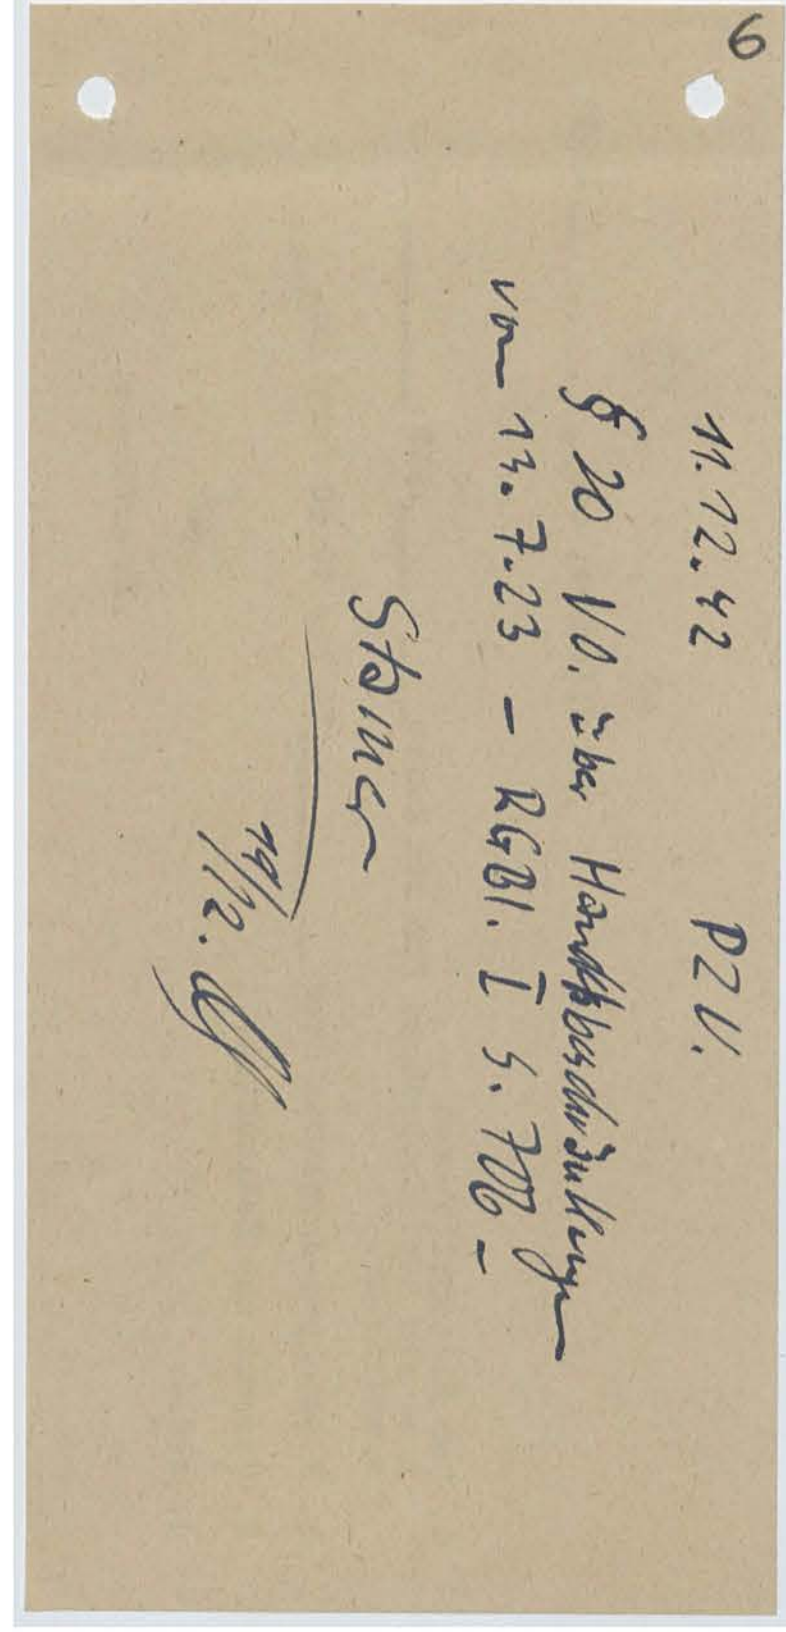 6
11.12.42 PZU.
§ 20 VO. über Handelsbeschränkungen
vom 13.7.23 - RGBl. I S. 706 -
19/12.